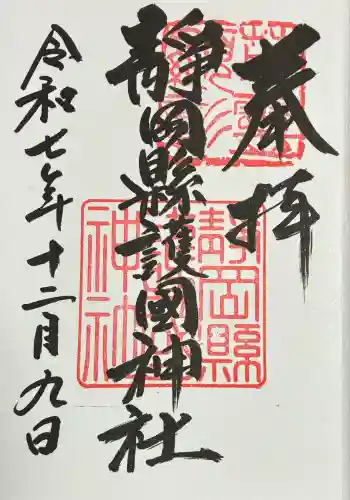 奉拝
靜岡縣護國神社
令和七年十二月九日
靜岡縣護國神社